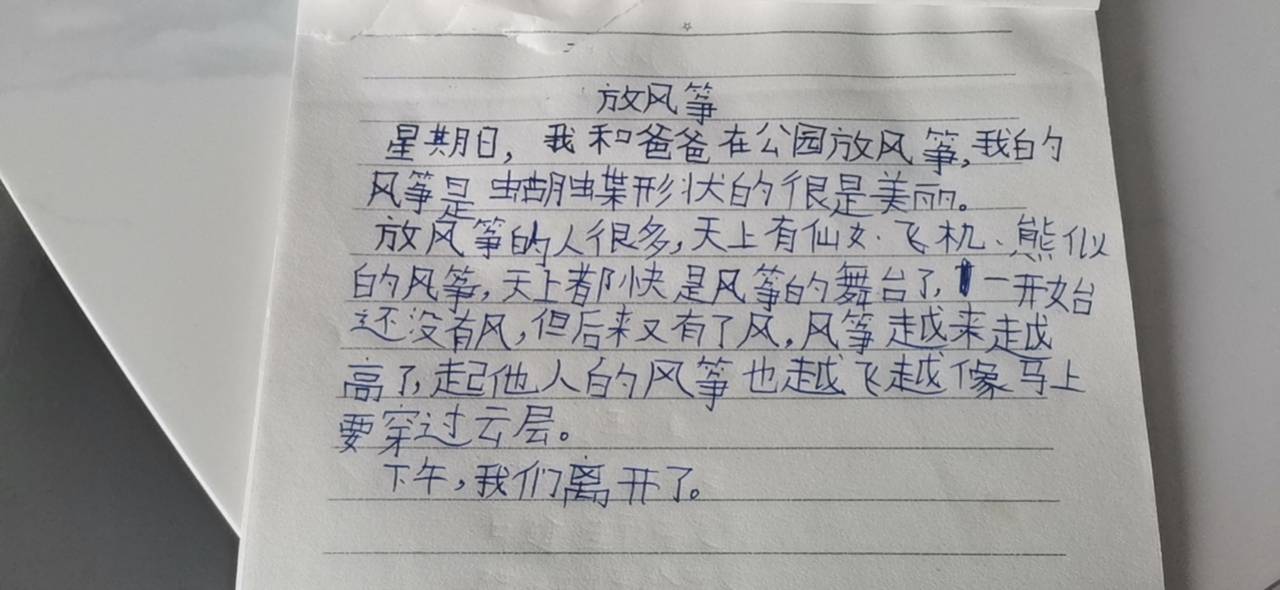 放风筝
星期日，我和爸爸在公园放风筝，我的
风筝是蝴蝶形状的很是美丽。
放风筝的人很多，天上有仙女、飞机、熊似
的风筝，天上都快是风筝的舞台了，一开始
还没有风，但后来又有了风，风筝越来越
高了，起他人的风筝也越飞越像马上
要穿过云层。
下午，我们离开了。